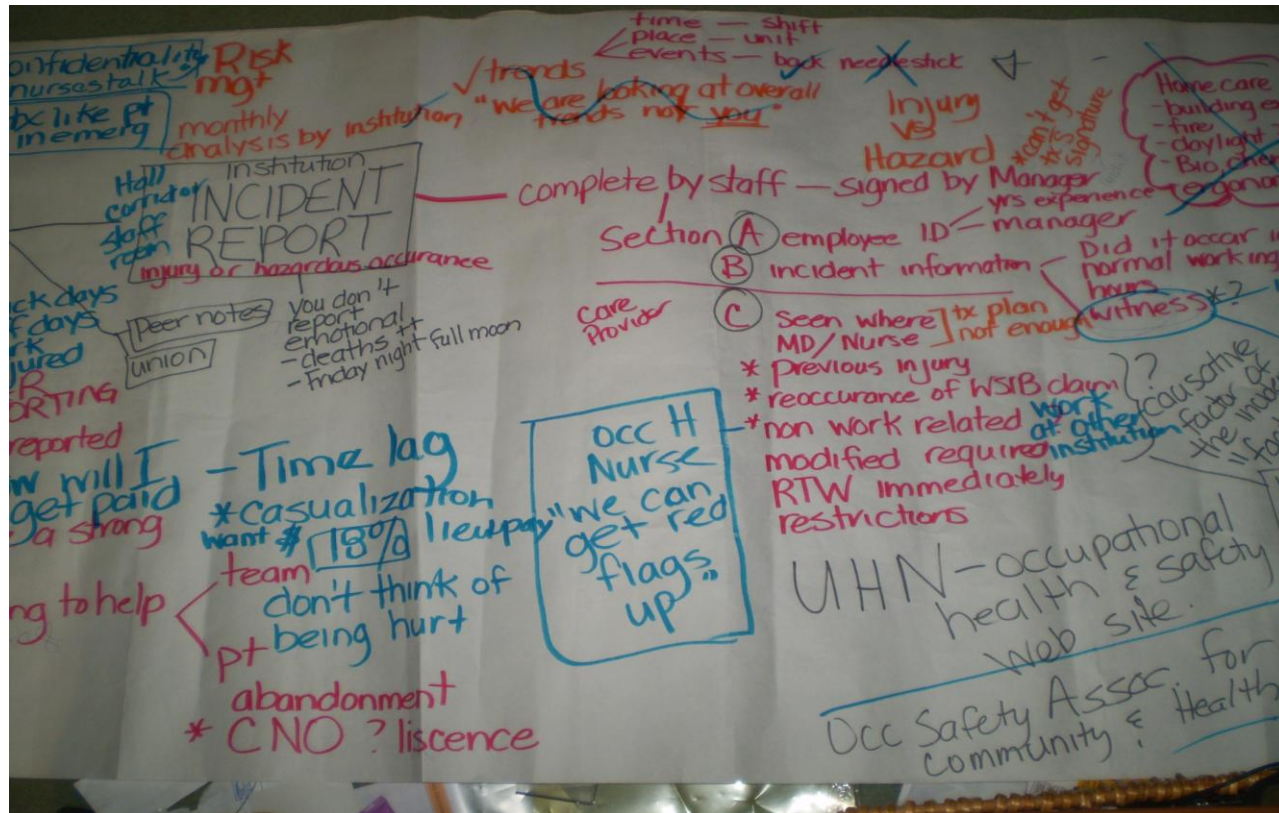 confidentiality
nurses talk
tx like pt
in emerg
Risk
mgt
monthly
analysis by institution
✓trends
time — shift
place — unit
events — back needlestick
"We are looking at overall
trends not you"
Injury
vs
Hazard
*can't get
tx s
signature
Home care
- building
- fire
- daylight
- Bio, chem
Hall
corridor
staff
room
Institution
INCIDENT
REPORT
injury or hazardous occurance
complete by staff — signed by Manager
Section A employee ID
yrs experience
manager
B incident information
Did it occur
normal working
hours
witness*?
Care
Provider
C seen where
MD/Nurse
tx plan
not enough
* previous injury
* reoccurance of WSIB claim
*non work related
modified required
RTW immediately
restrictions
work
at other
institution
?
causative
factor of
the incident
days
days
Peer notes
union
you don't
report
emotional
- deaths ++
- Friday night full moon
reported
will I
get paid
a strong
to help
- Time lag
*casualization
want $ 18% lieu pay
team
don't think of
being hurt
pt
abandonment
* CNO ? liscence
OCC H
Nurse
"we can
get red
flags
up"
UHN - occupational
health & safety
web site.
Occ Safety Assoc. for
community & Health